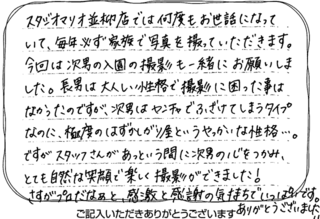 スタジオマリオ並柳店では何度もお世話になって
いて、毎年必ず家族で写真を撮っていただきます。
今回は次男の入園の撮影も一緒にお願いしま
した。長男は大人しい性格で撮影に困った事は
なかったのですが、次男はヤンチャでふざけてしまうタイプ
なのに、極度のはずかしがり屋というやっかいな性格…。
ですがスタッフさんがあっという間に次男の心をつかみ、
とても自然な笑顔で楽しく撮影ができました!
さすがプロだなあと、感激と感謝の気持ちでいっぱいです。
ありがとうございました
ご記入いただきありがとうございます